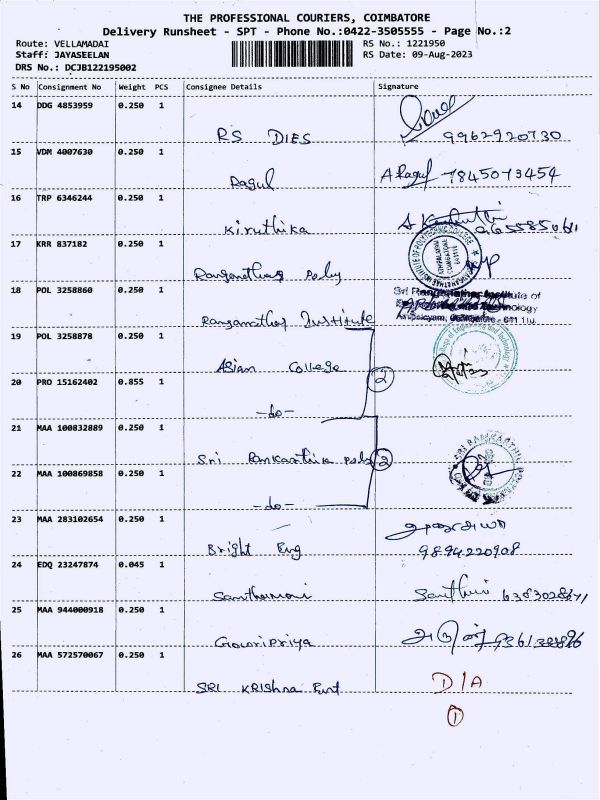 THE PROFESSIONAL COURIERS, COIMBATORE
Delivery Runsheet - SPT - Phone No.:0422-3505555 - Page No.:2
Route: VELLAMADAI RS No.: 1221950
Staff: JAYASEELAN RS Date: 09-Aug-2023
DRS No.: DCJB122195002
S No Consignment No Weight PCS Consignee Details Signature
14 DDG 4853959 0.250 1
RS DIES 9962920730
15 VDM 4007630 0.250 1
Ragul A Ragul 7845073454
16 TRP 6346244 0.250 1
Kiruthika
17 KRR 837182 0.250 1
Ranganathar poly
18 POL 3258860 0.250 1
Ranganathar Institute
Institute of
Technology
19 POL 3258878 0.250 1
Asian College
20 PRO 15162402 0.855 1 2
-do-
21 MAA 100832889 0.250 1
Sri Ramkarthik poly 2
22 MAA 100869858 0.250 1
-do-
23 MAA 283102654 0.250 1
Bright Eng 9894220908
24 EDQ 23247874 0.045 1
Santhamani
25 MAA 944000918 0.250 1
Gowripriya
26 MAA 572570067 0.250 1
SRI KRIShna Ent D/A
1